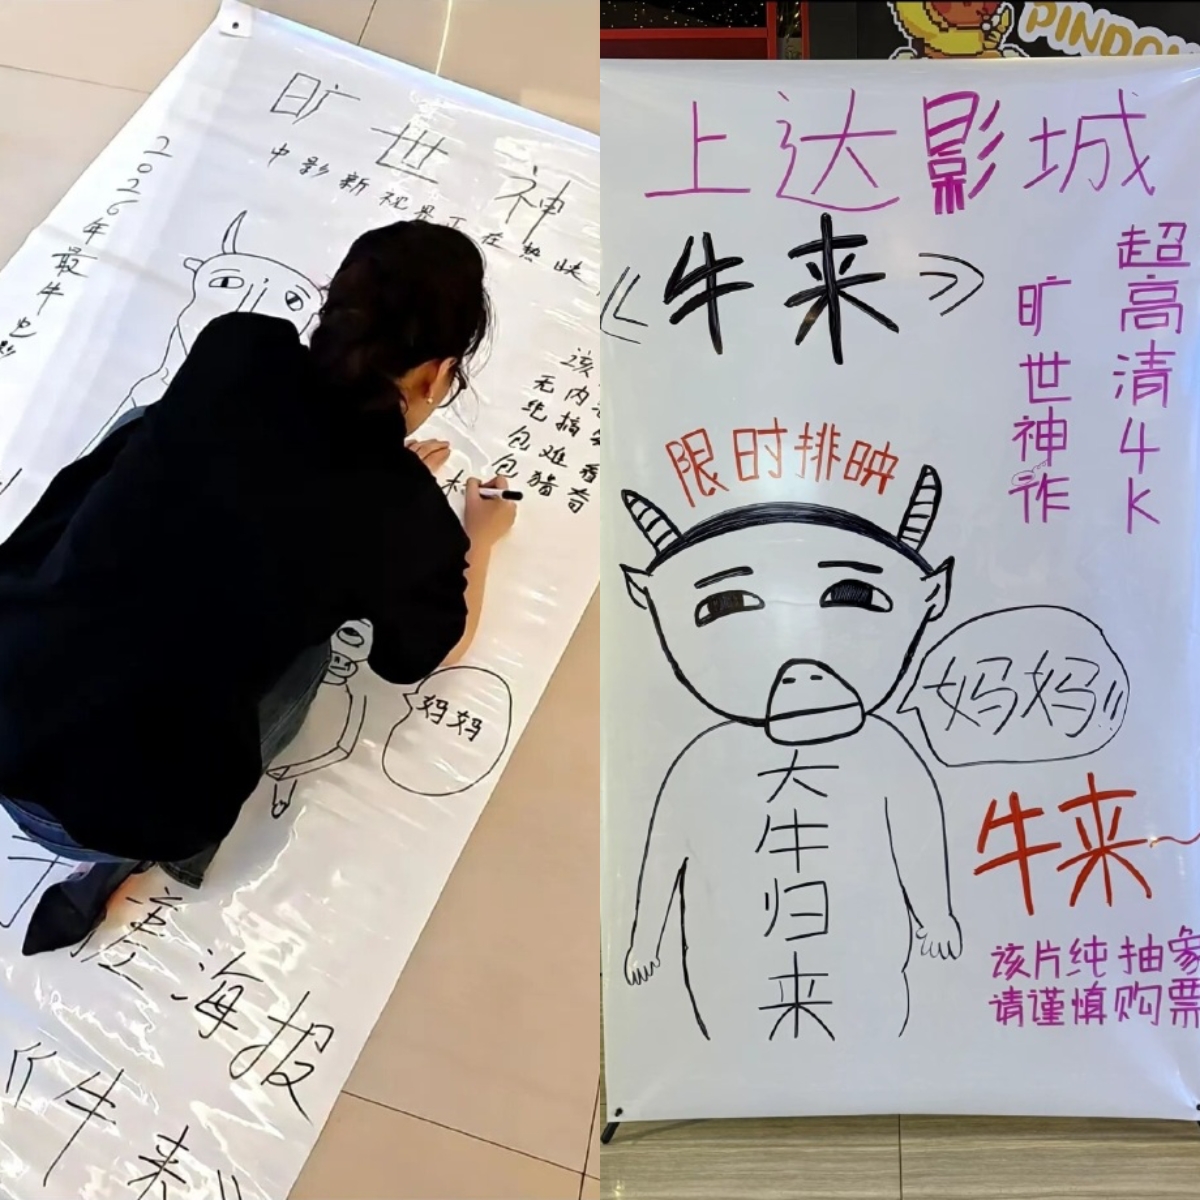 旷世神
中影新视界正在热映
2026年最牛电影
该
无内
纯搞
包难看
包猎奇
妈妈
手搓海报
《牛来》
PINDO
上达影城
《牛来》
超高清4K
旷世神作
限时排映
妈妈!!
大牛归来
牛来~
该片纯抽象
请谨慎购票